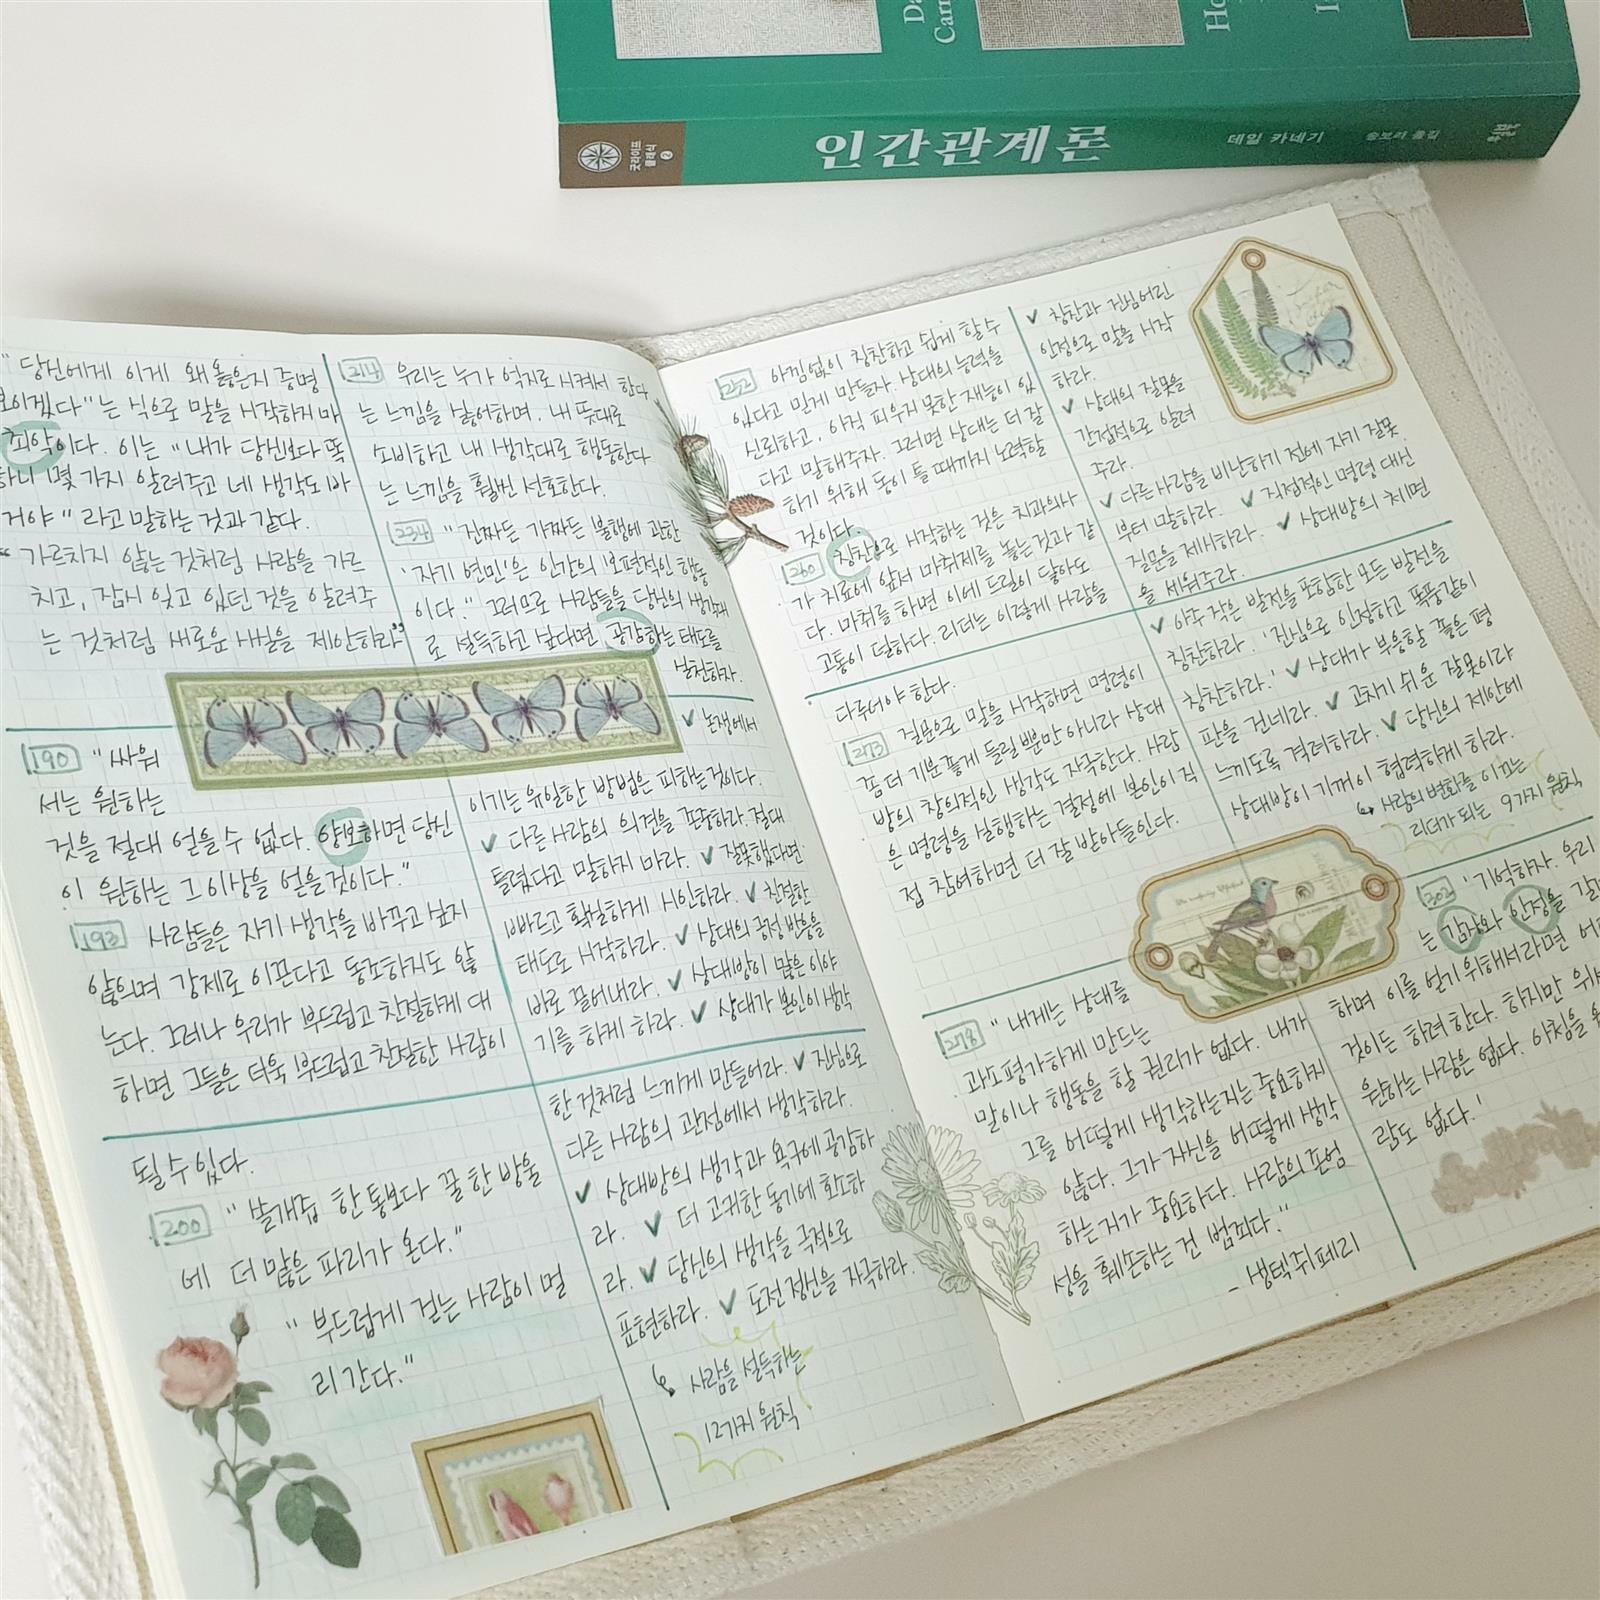 인간관계론
데일 카네기
굿라이프
클래식
2
" 당신에게 이게 왜 옳은지 증명
보이겠다"는 식으로 말을 시작하지 마
최악이다. 이는 "내가 당신보다 똑
하니 몇 가지 알려주고 네 생각도 바
거야" 라고 말하는 것과 같다.
" 가르치지 않는 것처럼 사람을 가르
치고, 잠시 잊고 있던 것을 알려주
는 것처럼 새로운 사실을 제안하라"
190 "싸워
서는 원하는
것을 절대 얻을 수 없다. 양보하면 당신
이 원하는 그 이상을 얻을 것이다."
193 사람들은 자기 생각을 바꾸고 싶지
않으며 강제로 이끈다고 동조하지도 않
는다. 그러나 우리가 부드럽고 친절하게 대
하면 그들은 더욱 부드럽고 친절한 사람이
될 수 있다.
200 " 쓸개즙 한 통보다 꿀 한 방울
에 더 많은 파리가 온다."
" 부드럽게 걷는 사람이 멀
리 간다."
214 우리는 누가 억지로 시켜서 한다
는 느낌을 싫어하며, 내 뜻대로
소비하고 내 생각대로 행동한다
는 느낌을 훨씬 선호한다.
234 " 진짜든 가짜든 불행에 관한
'자기 연민'은 인간의 보편적인 행동
이다." 그러므로 사람들을 당신의 생각대
로 설득하고 싶다면 공감하는 태도를
실천하자.
✓ 논쟁에서
이기는 유일한 방법은 피하는 것이다.
✓ 다른 사람의 의견을 존중하라. 절대
틀렸다고 말하지 마라. ✓ 잘못했다면
빠르고 확실하게 시인하라. ✓ 친절한
태도로 시작하라. ✓ 상대의 긍정 반응을
바로 끌어내라. ✓ 상대방이 많은 이야
기를 하게 하라. ✓ 상대가 본인이 생각
한 것처럼 느끼게 만들어라. ✓ 진심으로
다른 사람의 관점에서 생각하라.
✓ 상대방의 생각과 욕구에 공감하
라. ✓ 더 고귀한 동기에 호소하
라. ✓ 당신의 생각을 극적으로
표현하라. ✓ 도전 정신을 자극하라.
↳ 사람을 설득하는
12가지 원칙
252 아낌없이 칭찬하고 쉽게 할 수
있다고 믿게 만들자. 상대의 능력을
신뢰하고, 아직 피우지 못한 재능이 있
다고 말해주자. 그러면 상대는 더 잘
하기 위해 동이 틀 때까지 노력할
것이다.
260 칭찬으로 시작하는 것은 치과의사
가 치료에 앞서 마취제를 놓는 것과 같
다. 마취를 하면 이에 드릴이 닿아도
고통이 덜하다. 리더는 이렇게 사람을
다루어야 한다.
273 질문으로 말을 시작하면 명령이
좀 더 기분 좋게 들릴 뿐만 아니라 상대
방의 창의적인 생각도 자극한다. 사람
은 명령을 실행하는 결정에 본인이 직
접 참여하면 더 잘 받아들인다.
278 " 내게는 상대를
과소평가하게 만드는
말이나 행동을 할 권리가 없다. 내가
그를 어떻게 생각하는지는 중요하지
않다. 그가 자신을 어떻게 생각
하는지가 중요하다. 사람의 존엄
성을 훼손하는 건 범죄다."
- 생텍쥐페리
✓ 칭찬과 진심어린
인정으로 말을 시작
하라.
✓ 상대의 잘못을
간접적으로 알려
주라.
✓ 다른 사람을 비난하기 전에 자기 잘못
부터 말하라. ✓ 직접적인 명령 대신
질문을 제시하라. ✓ 상대방의 체면
을 세워주라.
✓ 아주 작은 발전을 포함한 모든 발전을
칭찬하라. '진심으로 인정하고 폭풍같이
칭찬하라.' ✓ 상대가 부응할 좋은 평
판을 건네라. ✓ 고치기 쉬운 잘못이라
느끼도록 격려하라. ✓ 당신의 제안에
상대방이 기꺼이 협력하게 하라.
↳ 사람의 변화를 이끄는
리더가 되는 9가지 원칙
302 '기억하자. 우리
는 감사와 인정을 갈
하며 이를 얻기 위해서라면
것이든 하려 한다. 하지만
원하는 사람은 없다. 아첨을
람도 없다.'